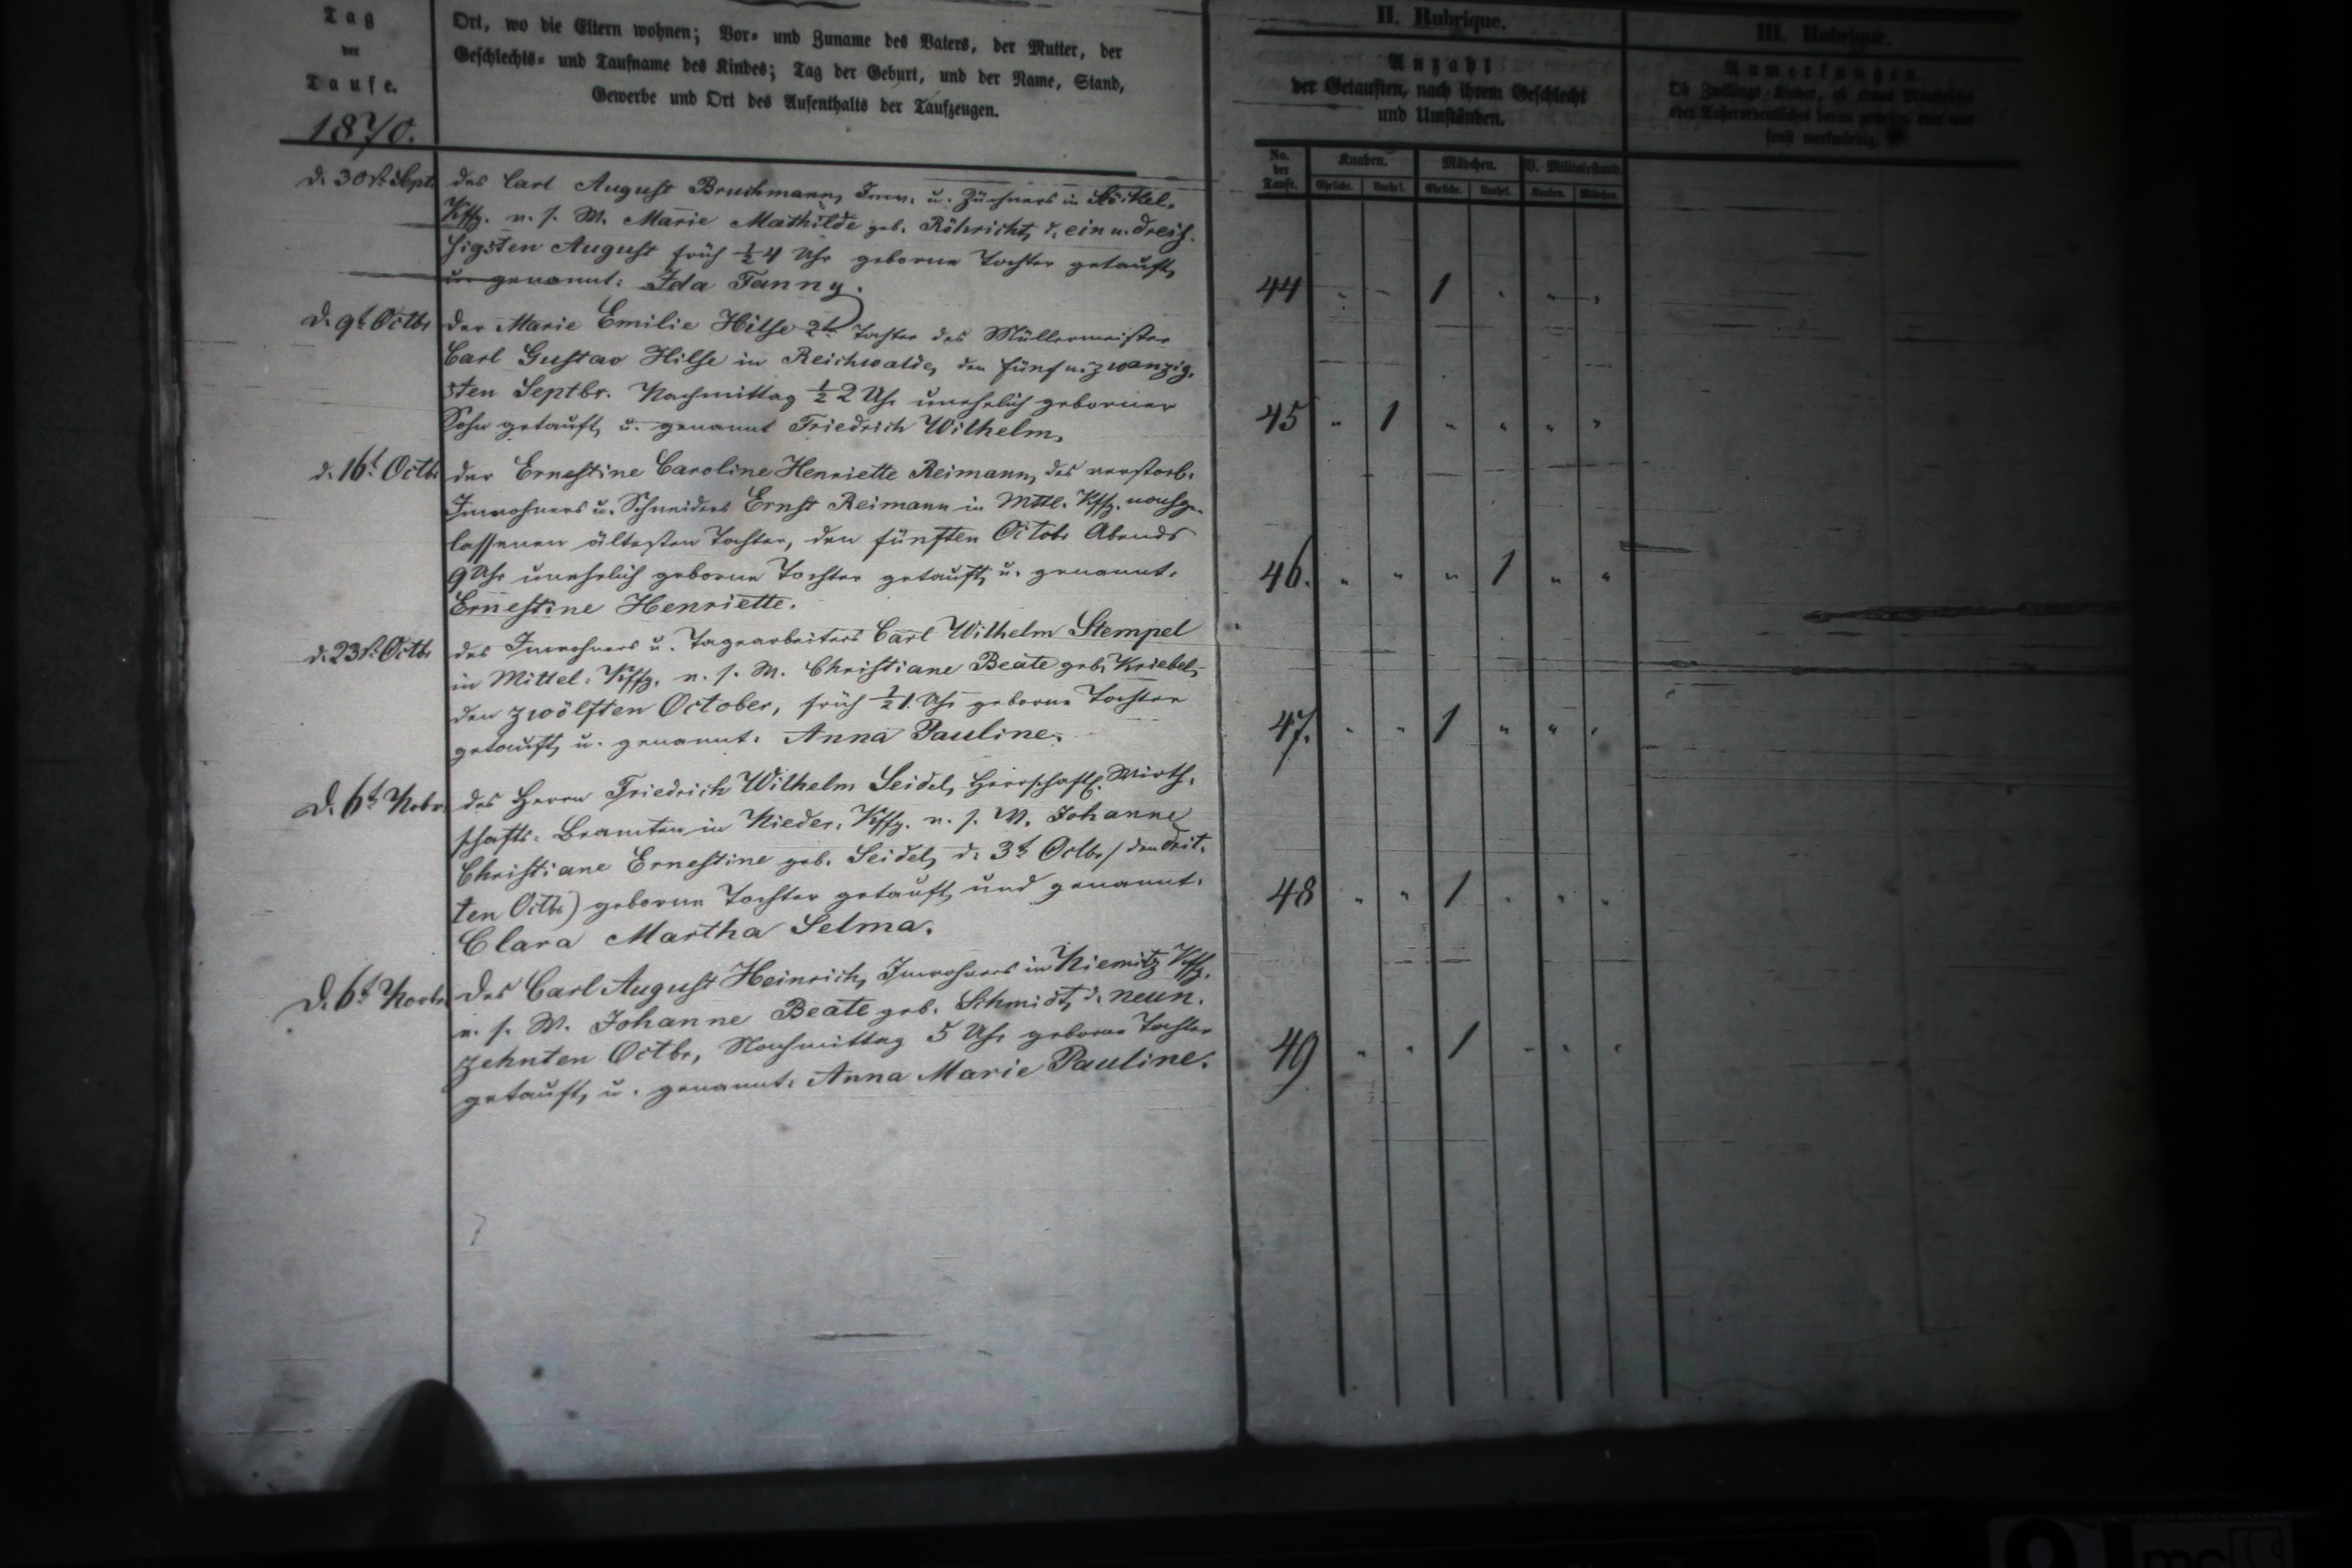 Tag
der
Taufe.
1870.
Ort, wo die Eltern wohnen; Vor- und Zuname des Vaters, der Mutter, der
Geschlechts- und Taufname des Kindes; Tag der Geburt, und der Name, Stand,
Gewerbe und Ort des Aufenthalts der Taufzeugen.
II. Rubrique.
Anzahl
der Getauften, nach ihrem Geschlecht
und Umständen.
III. Rubrique.
Anmerkungen.
Ob Zwillings-Kinder, ob etwas
oder Außerordentliches daran gewesen, oder was
sonst merkwürdig.
No.
der
Taufe.
Knaben. Mädchen. V. Militairstand.
Eheliche. Unehel. Eheliche. Unehel. Knaben. Mädchen.
d. 30st. Sept. des Carl August Bruchmann, Inw. u. Züchners in Stöckel-
Kffg. u. s. W. Marie Mathilde geb. Röhricht, d. ein u. dreis-
sigsten August früh ½4 Uhr geborne Tochter getauft,
u. genannt: Ida Fanny.
44 1
d. 9t. Octbr der Marie Emilie Hilse 2t. Tochter des Müllermeister
Carl Gustav Hilse in Reichwalde, den fünf u. zwanzig-
sten Septbr. Nachmittag ½2 Uhr unehelich geborner
Sohn getauft, u. genannt Friedrich Wilhelm.
45 1
d. 16t. Octbr der Ernestine Caroline Henriette Reimann, des verstorb.
Inwohners u. Schneiders Ernst Reimann in Mttl. Kffg. nachge-
lassenen ältesten Tochter, den fünften Octobr Abends
9 Uhr unehelich geborne Tochter getauft, u. genannt.
Ernestine Henriette.
46. 1
d. 23st. Octbr des Inwohners u. Tagearbeiters Carl Wilhelm Stempel
in Mittel-Kffg. u. s. W. Christiane Beate geb. Kriebel,
den zwölften October, früh ½1 Uhr geborne Tochter
getauft, u. genannt. Anna Pauline.
47. 1
D. 6t. Nobr. des Herrn Friedrich Wilhelm Seidel, herrschaftl. Wirth-
schafts-Beamten in Nieder-Kffg. u. s. W. Johanne
Christiane Ernestine geb. Seidel, d. 3t. Octbr (den drit-
ten Octbr) geborne Tochter getauft, und genannt.
Clara Martha Selma.
48 1
D. 6t. Novbr. des Carl August Heinrich, Inwohners in Niemitz Kffg.
u. s. W. Johanne Beate geb. Schmidt, d. neun-
zehnten Octbr, Nachmittag 5 Uhr geborne Tochter
getauft, u. genannt. Anna Marie Pauline.
49 1